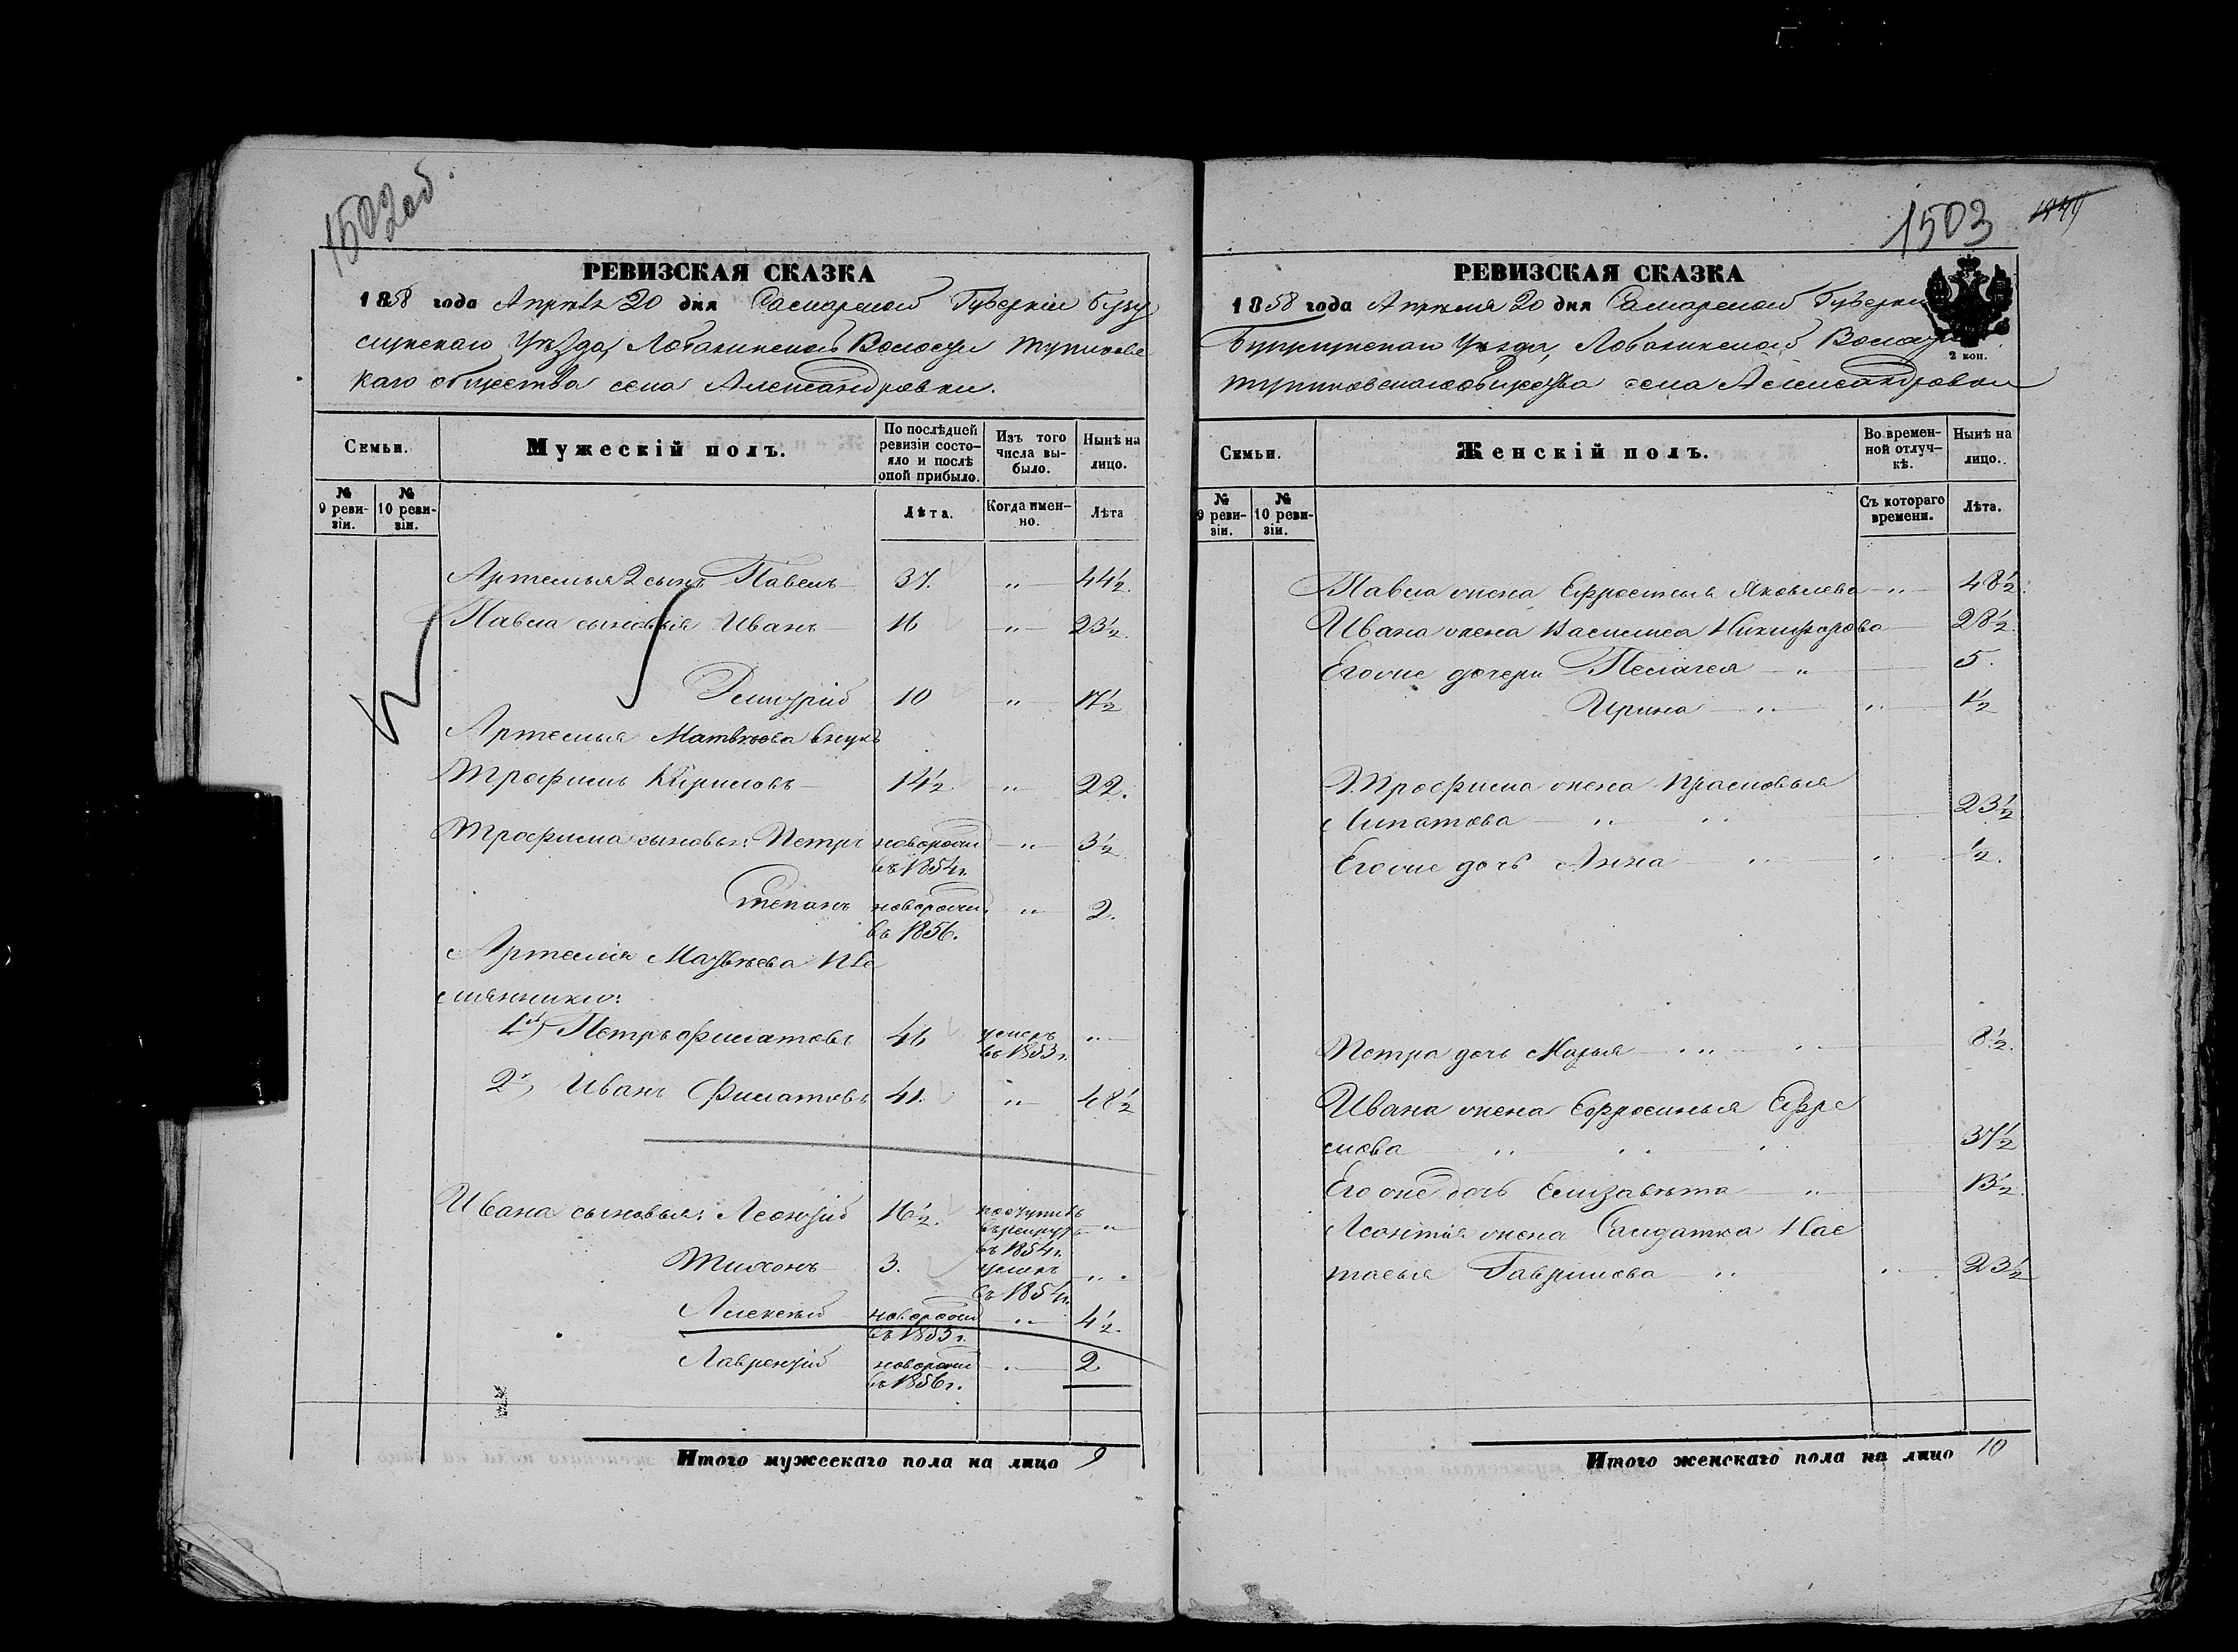 1502об.
РЕВИЗСКАЯ СКАЗКА
1858 года Апрѣля 20 дня Самарской Губерніи Бузу
лукскаго Уѣзда, Лобазинской Волости
каго общества села Александровки.
Семьи.
Мужескій полъ.
По послѣдней ревизіи состояло и послѣ оной прибыло.
Изъ того числа выбыло.
Нынѣ на лицо.
№ 9 ревизіи.
№ 10 ревизіи.
Лѣта.
Когда именно.
Лѣта
Артемья 2 сынъ Павелъ 37. " 44½.
Павла сыновья Иванъ 16 " 23½.
Дмитрій 10 " 17½
Артемья Матвѣева внукъ
Трофимъ Кириловъ 14½. " 22.
Трофима сыновья: Петръ новорожд " 3½
въ 1854г.
Степанъ новорожд. " 2.
въ 1856.
Артемія Матвѣева пле
мянники:
1й Петръ Филатовъ 46 умеръ "
въ 1853г.
2й, Иванъ Филатовъ 41. " 48½
Ивана сыновья: Леонтій 16½. поступилъ "
въ рекруты
въ 1854г.
Тихонъ 3. умеръ "
въ 1854г.
Алексѣй новорожд " 4½.
въ 1853г.
Лаврентій новорожд " 2
въ 1856г.
Итого мужескаго пола на лицо 9
1503
РЕВИЗСКАЯ СКАЗКА
1858 года Апрѣля 20 дня Самарской Губерніи
Бузулукскаго Уѣзда, Лобазинской Волости
общества села Александровки
2 коп.
Семьи.
Женскій полъ.
Во временной отлучкѣ.
Нынѣ на лицо.
№ 9 ревизіи.
№ 10 ревизіи.
Съ котораго времени.
Лѣта.
Павла жена Ефросинья Яковлева " 48½.
Ивана жена Василиса Никифорова 28½.
Его же дочери Пелагея " 5.
Ирина " " 1½
Трофима жена Прасковья
Липатова " " 23½
Его же дочь Анна " " ½.
Петра дочь Марья " " 8½.
Ивана жена Ефросинья Ефре
мова " " " 37½
Его же дочь Елизавѣта " 13½.
Леонтія жена Солдатка Нас
тасья Гаврилова " " 23½
Итого женскаго пола на лицо 10